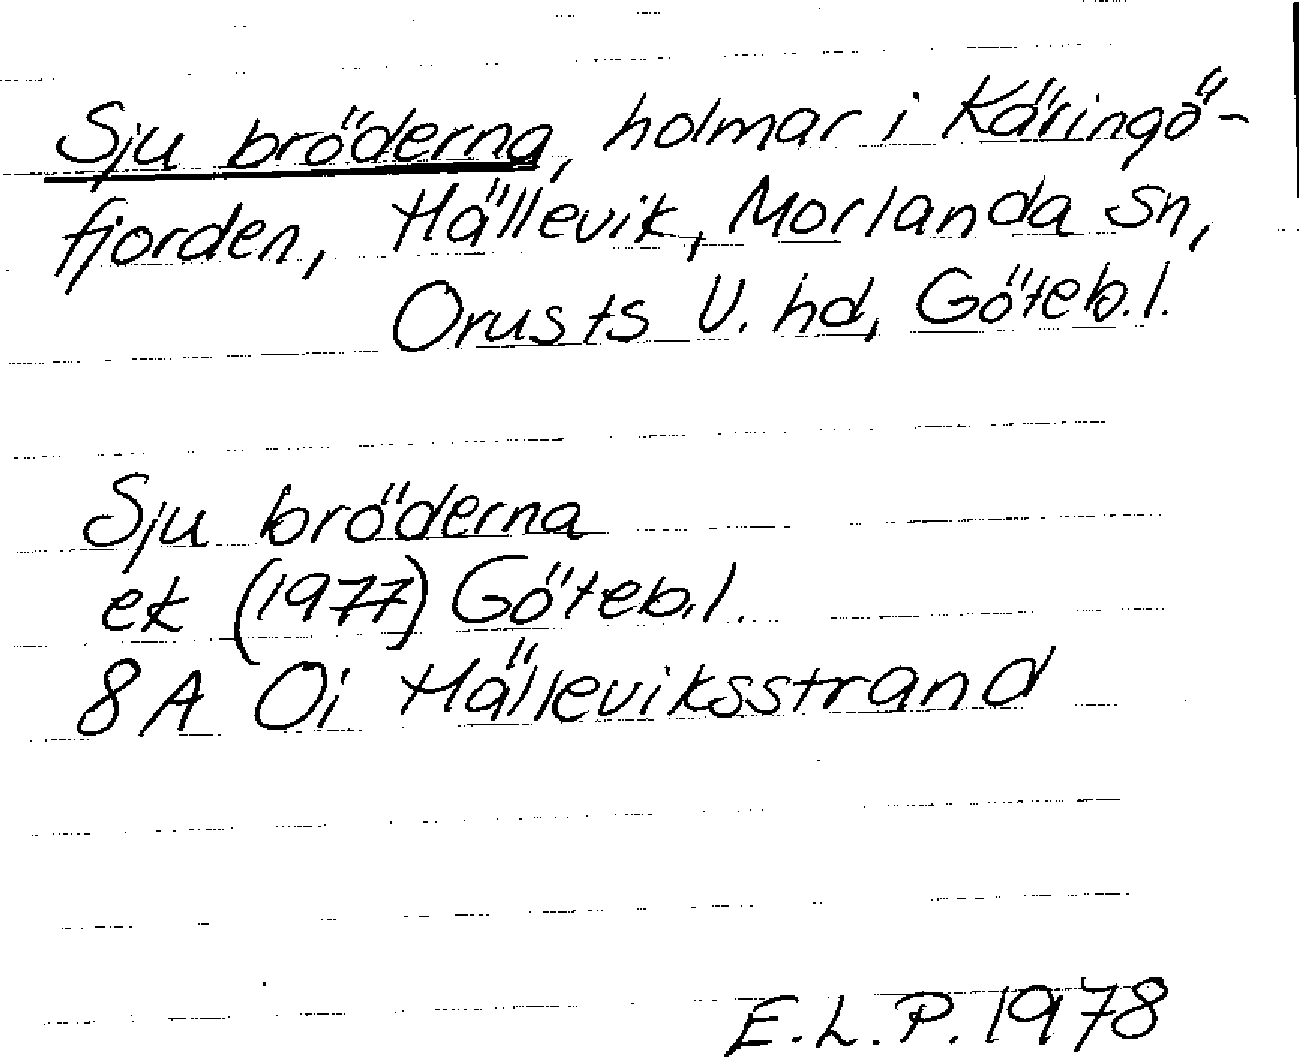 Sju bröderna, holmar i Käringö-
fjorden, Hällevik, Morlanda sn,
Orusts V. hd, Göteb.l.
Sju bröderna
ek (1977) Göteb.l.
8A Oi Hälleviksstrand
E.L.P. 1978